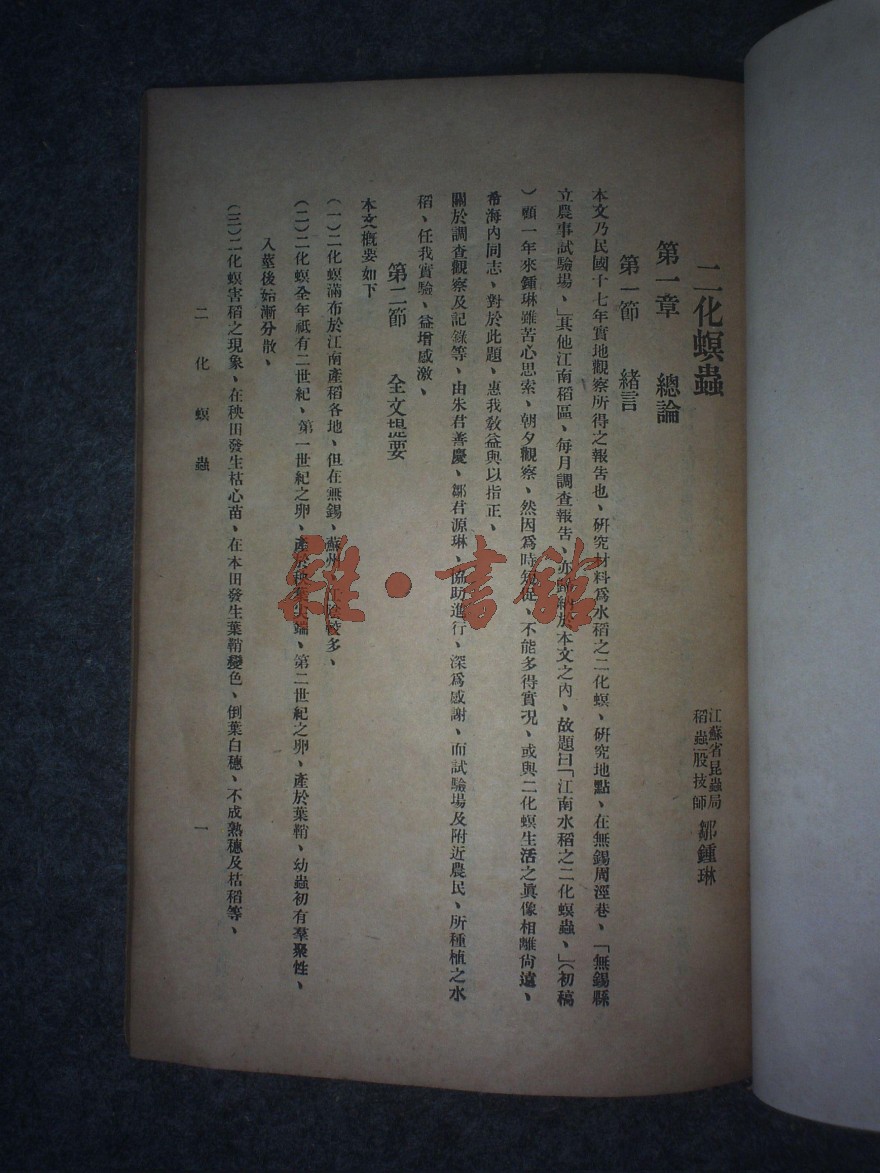 二化螟蟲
江蘇省昆蟲局
稻蟲股技師
鄒鍾琳
第一章 總論
第一節 緒言
本文乃民國十七年實地觀察所得之報告也、研究材料爲水稻之二化螟、研究地點、在無錫周涇巷、「無錫縣
立農事試驗場、」其他江南稻區、每月調查報告、亦歸納於本文之內、故題曰「江南水稻之二化螟蟲、」(初稿
)顧一年來鍾琳雖苦心思索、朝夕觀察、然因爲時短促、不能多得實況、或與二化螟生活之眞像相離尙遠、
希海內同志、對於此題、惠我敎益與以指正、
關於調查觀察及記錄等、由朱君善慶、鄒君源琳、協助進行、深爲感謝、而試驗場及附近農民、所種植之水
稻、任我實驗、益增感激、
第二節 全文提要
本文槪要如下
(一)二化螟滿布於江南產稻各地、但在無錫、蘇州、江陰較多、
(二)二化螟全年祇有二世紀、第一世紀之卵、產於秧葉尖端、第二世紀之卵、產於葉鞘、幼蟲初有羣聚性、
入莖後始漸分散、
(三)二化螟害稻之現象、在秧田發生枯心苗、在本田發生葉鞘變色、倒葉白穗、不成熟穗及枯稻等、
二化螟蟲
一
雜·書館